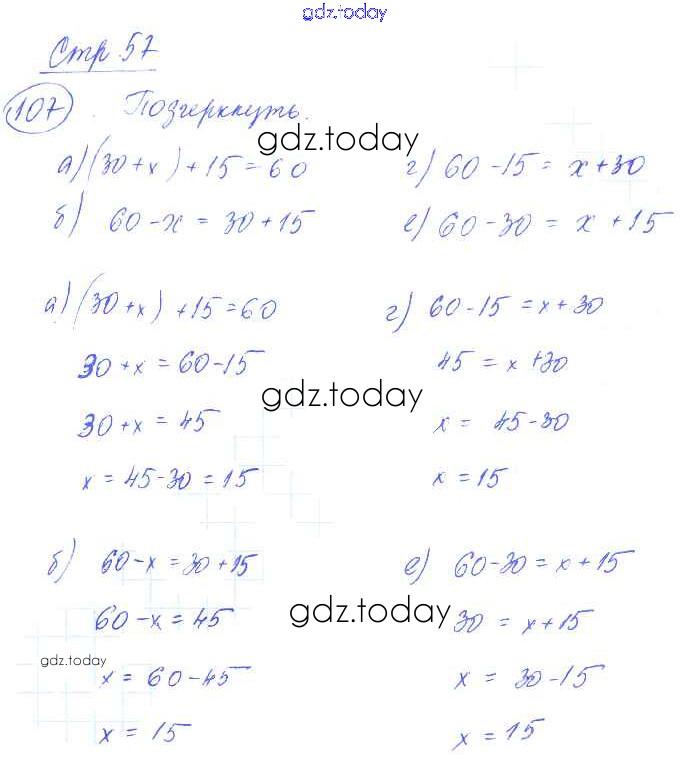 gdz.today
Стр 57
107. Подчеркнуть.
gdz.today
а) (30+х)+15=60 г) 60-15= х+30
б) 60-х = 30+15 е) 60-30 = х+15
а) (30+х)+15=60 г) 60-15=х+30
30+х=60-15 45=х+30
gdz.today
30+х=45 х= 45-30
х=45-30=15 х=15
б) 60-х=30+15 е) 60-30=х+15
gdz.today
60-х=45 30=х+15
gdz.today
х=60-45 х = 30-15
х=15 х=15